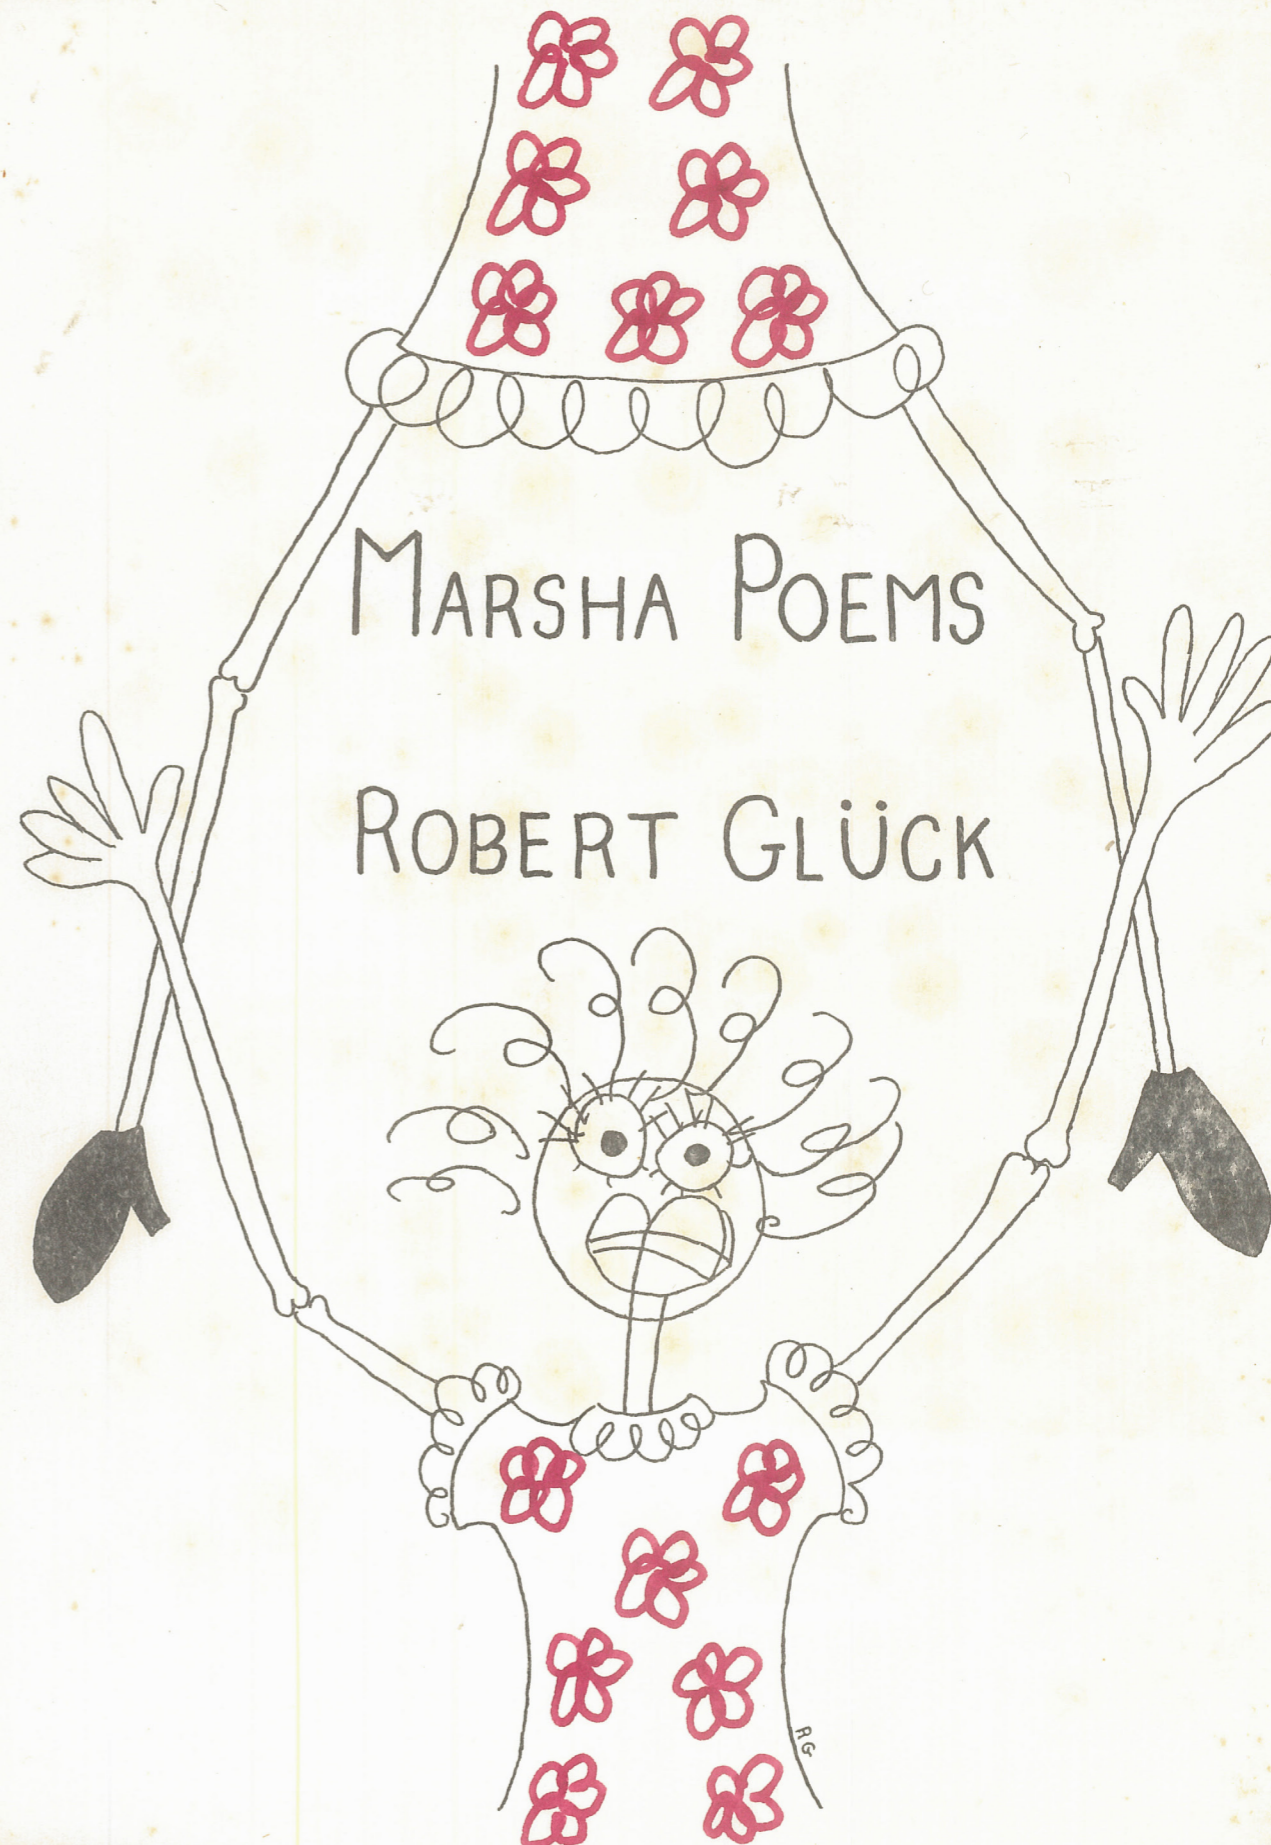 MARSHA POEMS
ROBERT GLÜCK
RG